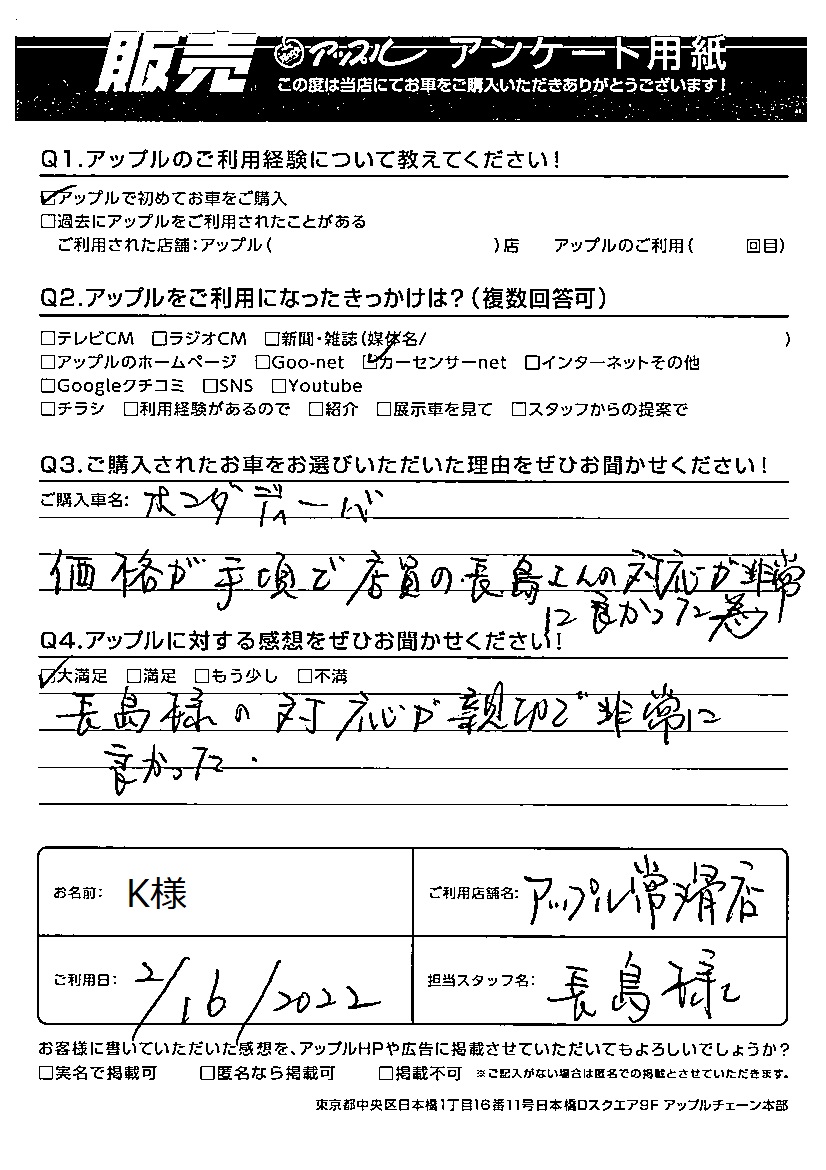 販売 アップル アンケート用紙
この度は当店にてお車をご購入いただきありがとうございます!
Q1.アップルのご利用経験について教えてください!
☑アップルで初めてお車をご購入
□過去にアップルをご利用されたことがある
ご利用された店舗:アップル( )店 アップルのご利用( 回目)
Q2.アップルをご利用になったきっかけは?(複数回答可)
□テレビCM □ラジオCM □新聞・雑誌(媒体名/ )
□アップルのホームページ □Goo-net ☑カーセンサーnet □インターネットその他
□Googleクチコミ □SNS □Youtube
□チラシ □利用経験があるので □紹介 □展示車を見て □スタッフからの提案で
Q3.ご購入されたお車をお選びいただいた理由をぜひお聞かせください!
ご購入車名: ホンダ
価格が手頃で店員の長島さんの対応が非常
に良かった為
Q4.アップルに対する感想をぜひお聞かせください!
☑大満足 □満足 □もう少し □不満
長島様の対応が親切で非常に
良かった.
お名前: K様 ご利用店舗名: アップル常滑店
ご利用日: 2/16/2022 担当スタッフ名: 長島様
お客様に書いていただいた感想を、アップルHPや広告に掲載させていただいてもよろしいでしょうか?
□実名で掲載可 □匿名なら掲載可 □掲載不可 ※ご記入がない場合は匿名での掲載とさせていただきます。
東京都中央区日本橋1丁目16番11号日本橋Dスクエア9F アップルチェーン本部